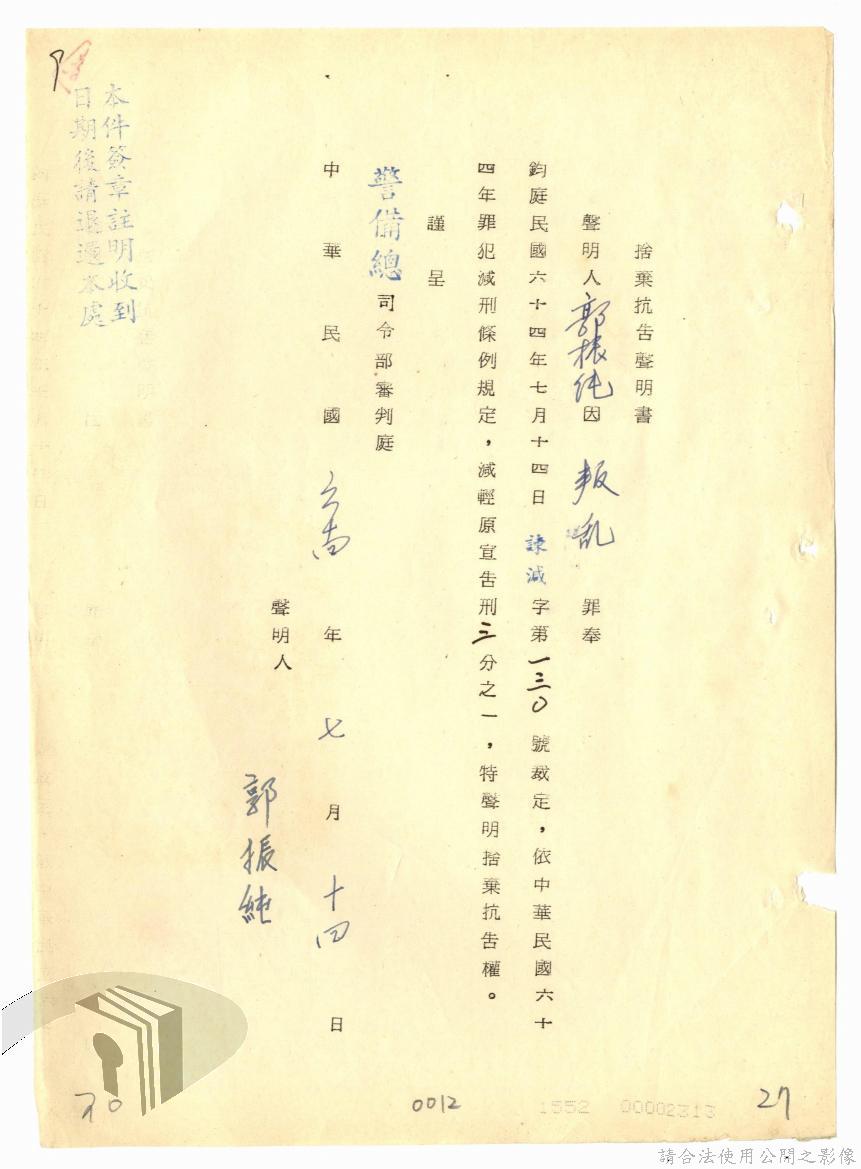 捨棄抗告聲明書
聲明人郭振純因 叛乱 罪奉
鈞庭民國六十四年七月十四日 諫減 字第一三〇 號裁定，依中華民國六十
四年罪犯減刑條例規定，減輕原宣告刑三分之一，特聲明捨棄抗告權。
謹呈
警備總司令部審判庭
中華民國 六十四 年 七 月 十四 日
聲明人
郭振純
本件簽章註明收到
日期後請退還本處
30
0012
1552 00002313
27
請合法使用公開之影像